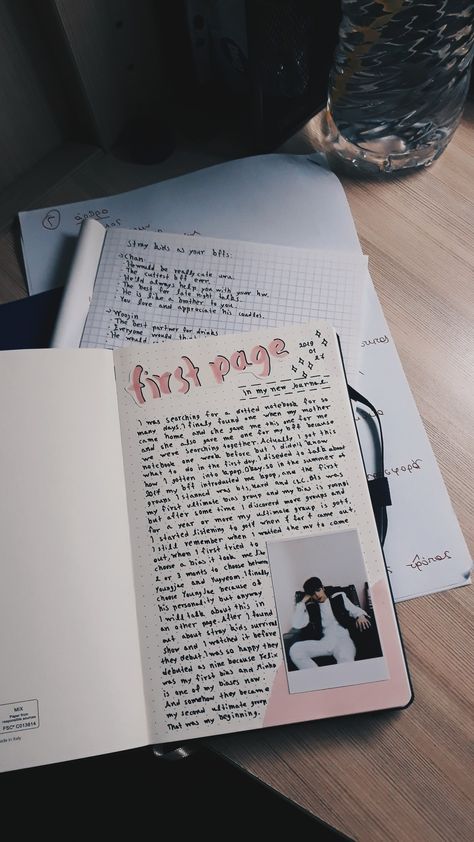 stray kids as your bffs:
→Chan
He would be really cute
The cuttest bff ever.
He'ld always help you with your hw.
The best for late night talks
He is like a brother to you.
You love and appreciate his
→Woojin
The best partner for drinks
Everyone would
He would
first page
2019
01
27
in my new journal
I was searching for a dotted notebook for so
many days. I finally found one when my mother
came home and she gave me this one for me
and she also gave me one for my bff because
we were searching together. Actually I got this
notebook one week before but I didn't know
what to do in the first day. I diseded to talk about
how I gotten into kpop. Okay, so in the summer of
2017 my bff introdusted me kpop, and the first
groups I stanned was bts, kard and CLC. Bts was
my first ultimate bias group and my bias is yoongi
but after some time I discorerd more groups and
for a year or more my ultimate group is got7.
I started listening to got7 when if you came out.
I still remember when I waited the mv to come
out, when I first tried to
choose a bias it took me like
2 or 3 monts to choose between
Youngjae and Yugyeom. I finally
choose Youngjae because of
his personality but anyway
I will talk about this in
an other page. After I found
out about stray kids survival
show and I watched it before
they debut. I was so happy they
debuted as nine because Felix
was my first bias and Minho
is one of my biases now.
And somehow they became
my second ultimate group
That was my beginning.
MIX
Paper from
responsible sources
FSC® C013614
Made in Italy